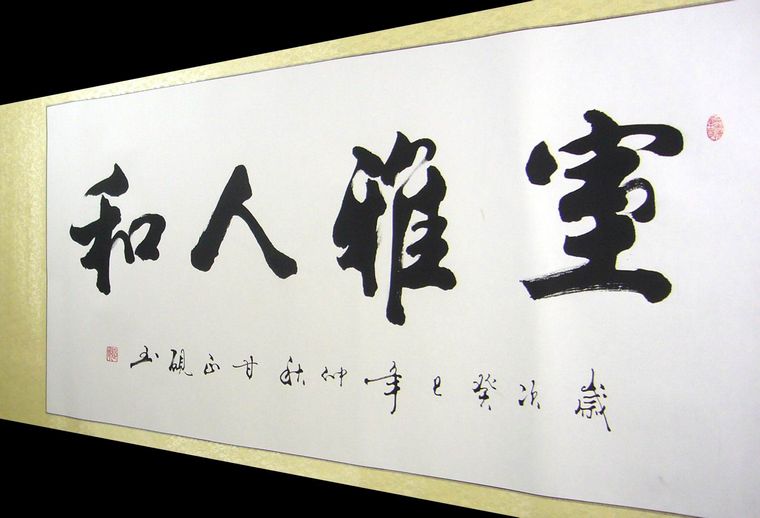 室雅人和
歲次癸巳年仲秋甘正硯书